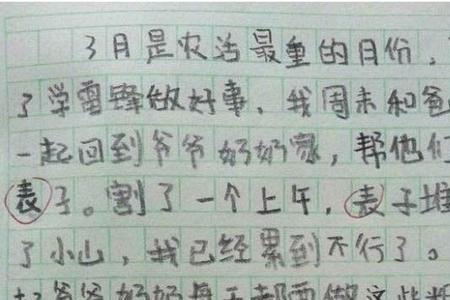 3月是农活最重的月份,
了学雷锋做好事,我周末和爸
一起回到爷爷奶奶家,帮他们
表子。割了一个上午,表子堆
了小山,我已经累到不行了。
爷爷奶奶每天都要做这些